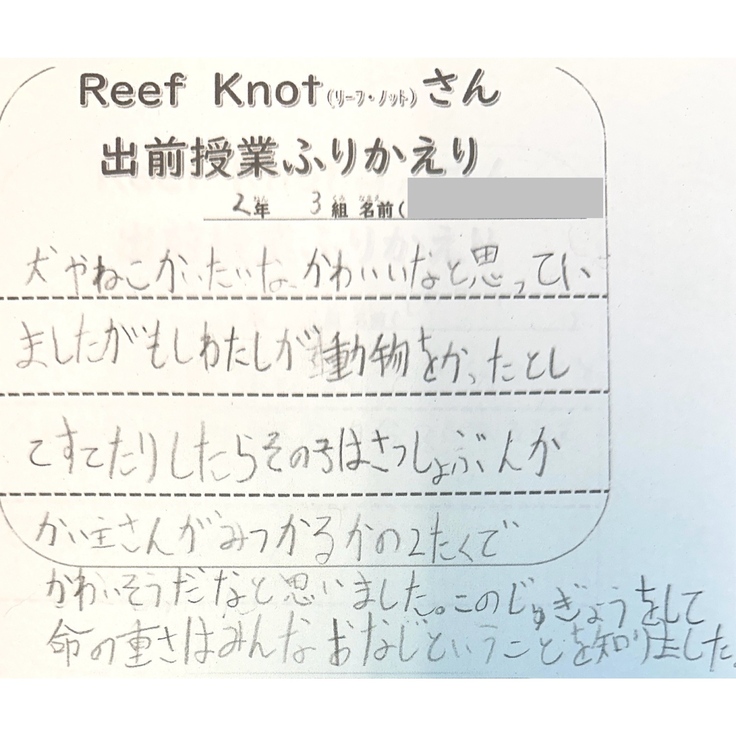 Reef Knot(リーフ・ノット)さん
出前授業ふりかえり
2年 3組 名前(
犬やねこかいたいな、かわいいなと思ってい
ましたがもしわたしが動物をかったとし
てすてたりしたらその子はさっしょぶんか
かい主さんがみつかるかの2たくで
かわいそうだなと思いました。このじゅぎょうをして
命の重さはみんなおなじということを知りました。